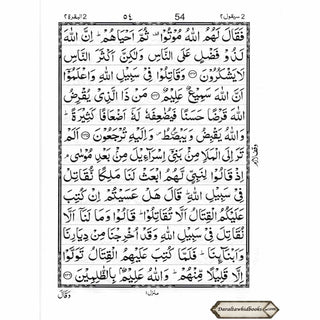 2 سيقول ٢ ٥٤ 54 2 البقرة ٢
فَقَالَ لَهُمُ اللّٰهُ مُوْتُوْا ثُمَّ اَحْيَاهُمْ ؕ اِنَّ اللّٰهَ
لَذُوْ فَضْلٍ عَلَى النَّاسِ وَلٰكِنَّ اَكْثَرَ النَّاسِ
لَا يَشْكُرُوْنَ ۝ وَقَاتِلُوْا فِيْ سَبِيْلِ اللّٰهِ وَاعْلَمُوْٓا
اَنَّ اللّٰهَ سَمِيْعٌ عَلِيْمٌ ۝ مَنْ ذَا الَّذِيْ يُقْرِضُ
اللّٰهَ قَرْضًا حَسَنًا فَيُضٰعِفَهٗ لَهٗٓ اَضْعَافًا كَثِيْرَةً ؕ
وَاللّٰهُ يَقْبِضُ وَيَبْصُۜطُ ۪ وَاِلَيْهِ تُرْجَعُوْنَ ۝ اَلَمْ
تَرَ اِلَى الْمَلَاِ مِنْۢ بَنِيْٓ اِسْرَآءِيْلَ مِنْۢ بَعْدِ مُوْسٰى ۘ
اِذْ قَالُوْا لِنَبِيٍّ لَّهُمُ ابْعَثْ لَنَا مَلِكًا نُّقَاتِلْ
فِيْ سَبِيْلِ اللّٰهِ ؕ قَالَ هَلْ عَسَيْتُمْ اِنْ كُتِبَ
عَلَيْكُمُ الْقِتَالُ اَلَّا تُقَاتِلُوْا ؕ قَالُوْا وَمَا لَنَآ اَلَّا
نُقَاتِلَ فِيْ سَبِيْلِ اللّٰهِ وَقَدْ اُخْرِجْنَا مِنْ دِيَارِنَا
وَاَبْنَآئِنَا ؕ فَلَمَّا كُتِبَ عَلَيْهِمُ الْقِتَالُ تَوَلَّوْا
اِلَّا قَلِيْلًا مِّنْهُمْ ؕ وَاللّٰهُ عَلِيْمٌۢ بِالظّٰلِمِيْنَ ۝
منزل ١ وَقَالَ
Darultawhidbooks.com